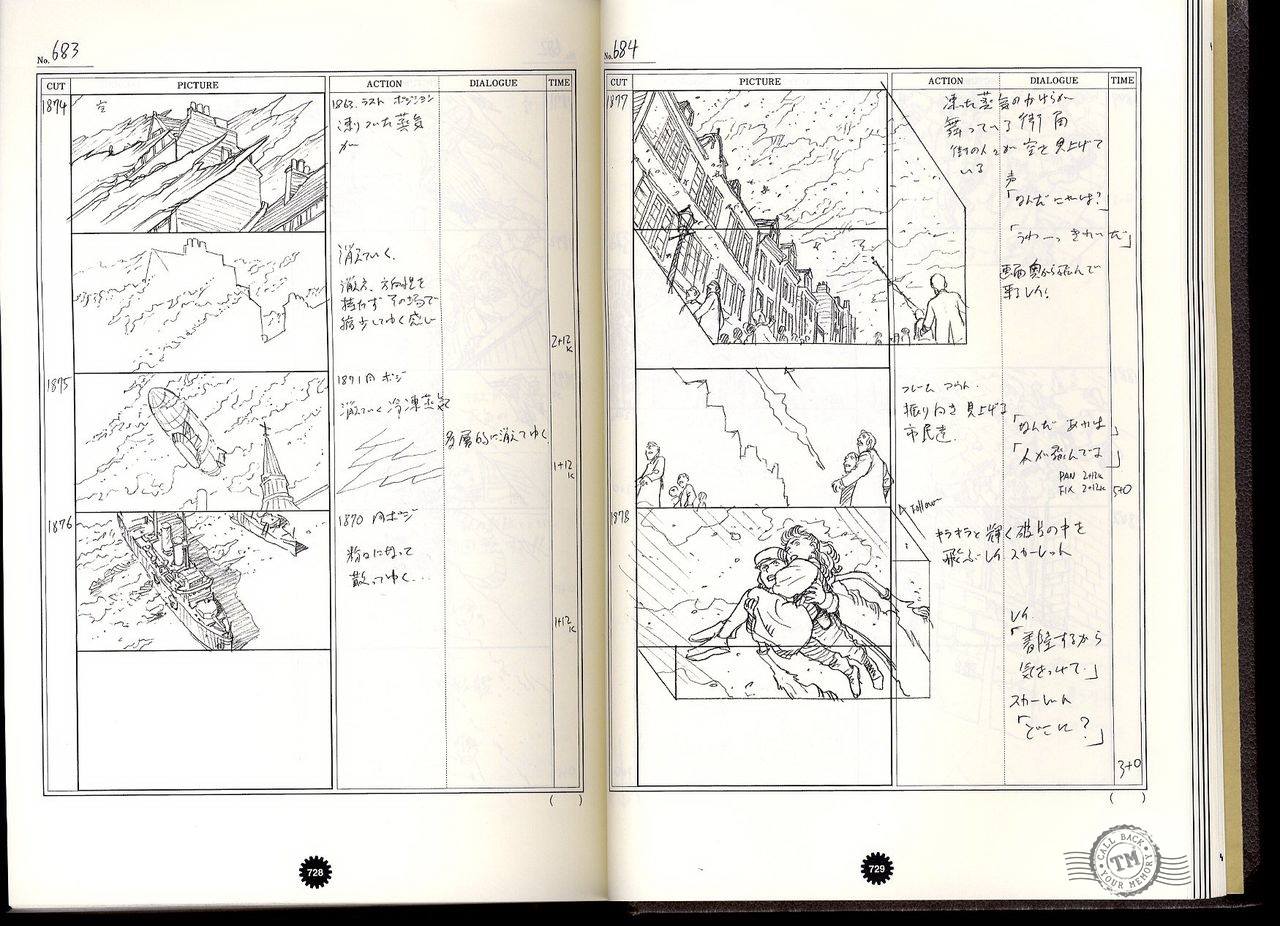 No. 683
CUT PICTURE ACTION DIALOGUE TIME
1874
空
1863. ラスト ポジション
凍りついた蒸気
が
消えていく.
消え方 方向性を
持たず その場で
2+12
K
1875
1871 同ポジ
消えていく冷凍蒸気
多層的に消えてゆく
1+12
K
1876
1870 同ポジ
粉々になって
散ってゆく...
1+12
K
( )
728
No. 684
CUT PICTURE ACTION DIALOGUE TIME
1877
凍った蒸気のかけらが
舞っている街角
街の人々が 空を見上げて
いる
声
「なんだこれは?」
「うわーっ きれいだ」
画面奥から飛んで
来るレイ!
振り向き 見上げる
市民達.
「なんだ あれは」
「人が飛んでるよ」
PAN 2+12K
FIX 2+12K
5+0
1878
Follow
キラキラと輝く破片の中を
飛ぶレイ スカーレット
レイ
「着陸するから
気をつけて.」
スカーレット
「どこに?」
3+0
( )
729
CALL BACK
TM
YOUR MEMORY